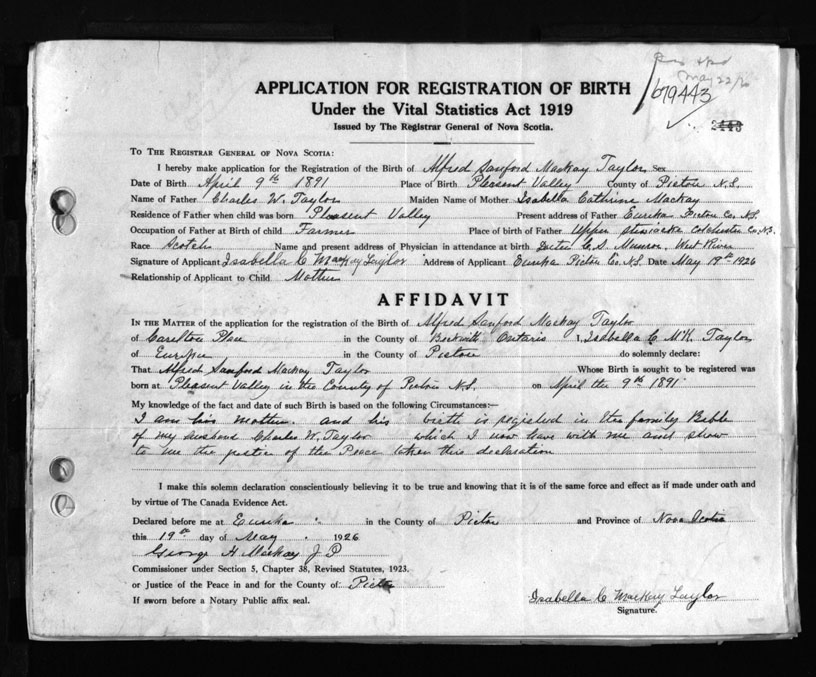 May 22/26
679443
2443
APPLICATION FOR REGISTRATION OF BIRTH
Under the Vital Statistics Act 1919
Issued by The Registrar General of Nova Scotia.
TO THE REGISTRAR GENERAL OF NOVA SCOTIA:
I hereby make application for the Registration of the Birth of Alfred Sanford Mackay Taylor Sex
Date of Birth April 9th 1891 Place of Birth Pleasent Valley County of Pictou N.S.
Name of Father Charles W. Taylor Maiden Name of Mother Isabella Cathrine Mackay
Residence of Father when child was born Pleasent Valley Present address of Father Eureka Pictou Co. N.S.
Occupation of Father at Birth of child Farmer Place of birth of Father Upper Stewiacke Colchester Co. N.S.
Race Scotch Name and present address of Physician in attendance at birth C.S. Munro. West River
Signature of Applicant Isabella C Mackay Taylor Address of Applicant Eureka Pictou Co. N.S. Date May 19th 1926
Relationship of Applicant to Child Mother
AFFIDAVIT
IN THE MATTER of the application for the registration of the Birth of Alfred Sanford Mackay Taylor
of Carelton Place in the County of Beckwith Ontario I, Isabella C. McK. Taylor
of Eureka in the County of Pictou do solemnly declare:
That Alfred Sanford Mackay Taylor Whose Birth is sought to be registered was
born at Pleasent Valley in the County of Pictou N.S. on April the 9th 1891
My knowledge of the fact and date of such Birth is based on the following Circumstances:—
I am his mother. and his birth is registed in the family Bible
of my husband Charles W. Taylor which I now have with me and show
to me the justice of the Peace taken this declaration
I make this solemn declaration conscientiously believing it to be true and knowing that it is of the same force and effect as if made under oath and
by virtue of The Canada Evidence Act.
Declared before me at Eureka in the County of Pictou and Province of Nova Scotia
this 19th day of May 1926
George H Mackay J P
Commissioner under Section 5, Chapter 38, Revised Statutes, 1923.
or Justice of the Peace in and for the County of: Pictou
If sworn before a Notary Public affix seal.
Isabella C Mackay Taylor
Signature.